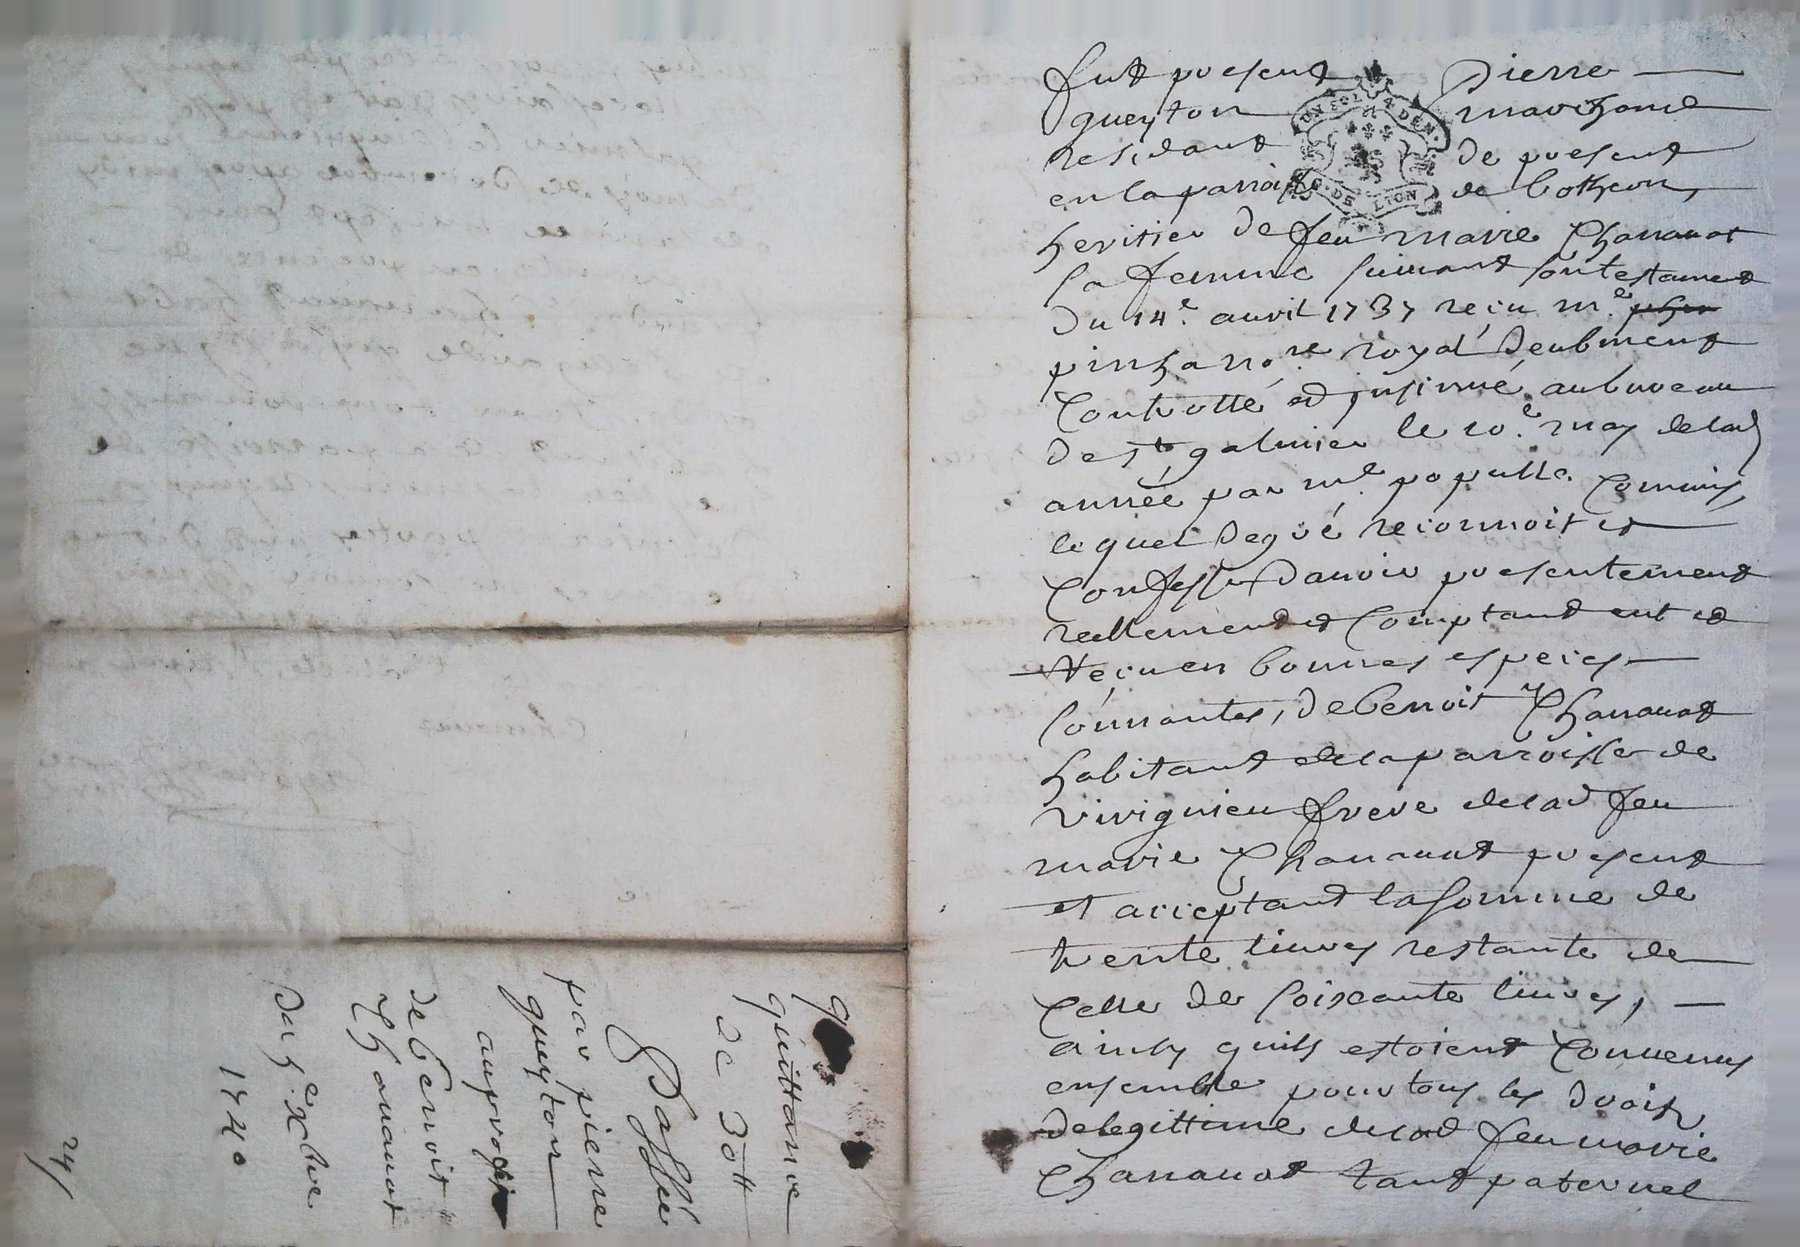 fut present Pierre
queyton marchand
residant de present
en la parroisse de Botheon,
heritier de feu marie Chanauat
sa femme suiuant son testament
du 14e. auril 1737 recu me.
pinha nore royal deubment
Controllé et insinué au bureau
de st galmier le 10e. may de lad
année par me populle Commis,
lequel de gré reconnoit et
Confesse d'auoir presentement
reellement et Comptant eut et
recu en bonnes especes
sonnantes, de Benoit Chanauat
habitant de la parroisse de
Virignieu frere de lad feu
marie Chanauat present
et acceptant la somme de
trente liures restante de
Celle de soixante liures,
ainsy quils estoient Conuenus
ensemble pour tous les droits
de legittime de lad feu marie
Chanauat tant paternel
UN SOL 4 DEN.
G. DE LION
quittance
de 30tt
Passée
par pierre
queyton
au profit
de Benoit
Chanauat
du 5e. xbre
1740
24